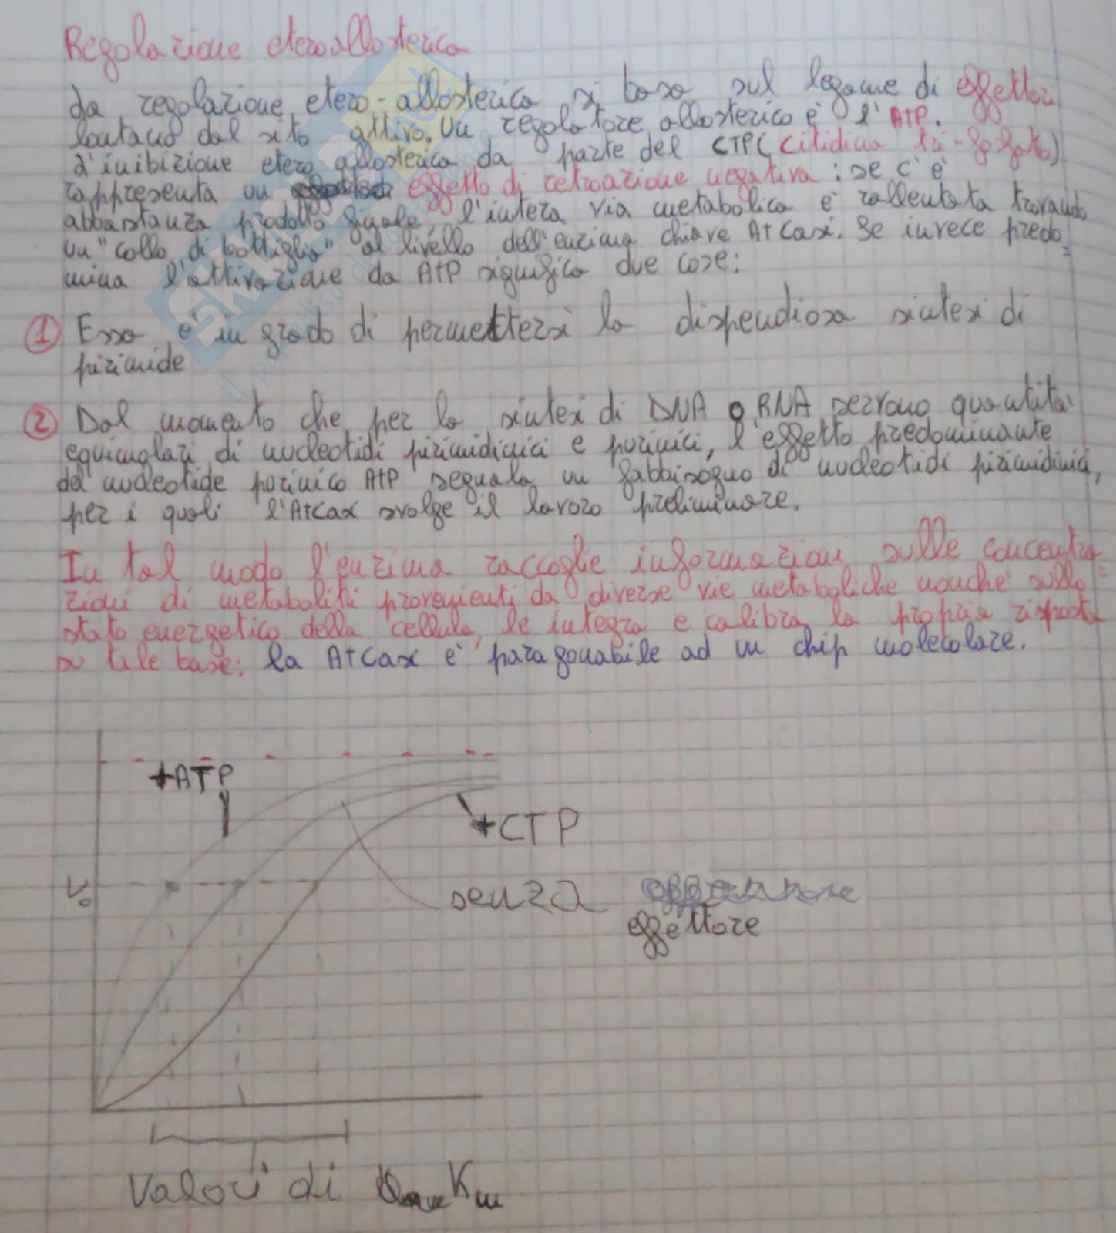 Regolazione eteroallosterica
La regolazione etero-allosterica si basa sul legame di effettori
lontano dal sito attivo. Un regolatore allosterico è l'ATP.
L'inibizione etero allosterica da parte del CTP (citidina tri-fosfato)
rappresenta un effetto di retroazione negativa: se c'è
abbastanza prodotto finale l'intera via metabolica è rallentata trovando
un "collo di bottiglia" al livello dell'enzima chiave Atcasi. Se invece predo=
mina l'attivazione da ATP significa due cose:
① Esso è in grado di permettersi la dispendiosa sintesi di
pirimide
② Dal momento che per la sintesi di DNA o RNA servono quantità
equimolari di nucleotidi pirimidinici e purinici, l'effetto predominante
del nucleotide purinico ATP segnala un fabbisogno di nucleotidi pirimidinici,
per i quali l'Atcasi svolge il lavoro preliminare.
In tal modo l'enzima raccoglie informazioni sulle concentra=
zioni di metaboliti provenienti da diverse vie metaboliche nonché sullo
stato energetico della cellula, le integra e calibra la propria risposta
su tale base: la Atcasi è paragonabile ad un chip molecolare.
+ATP
+CTP
V₀
senza
effettore
Valori di Km